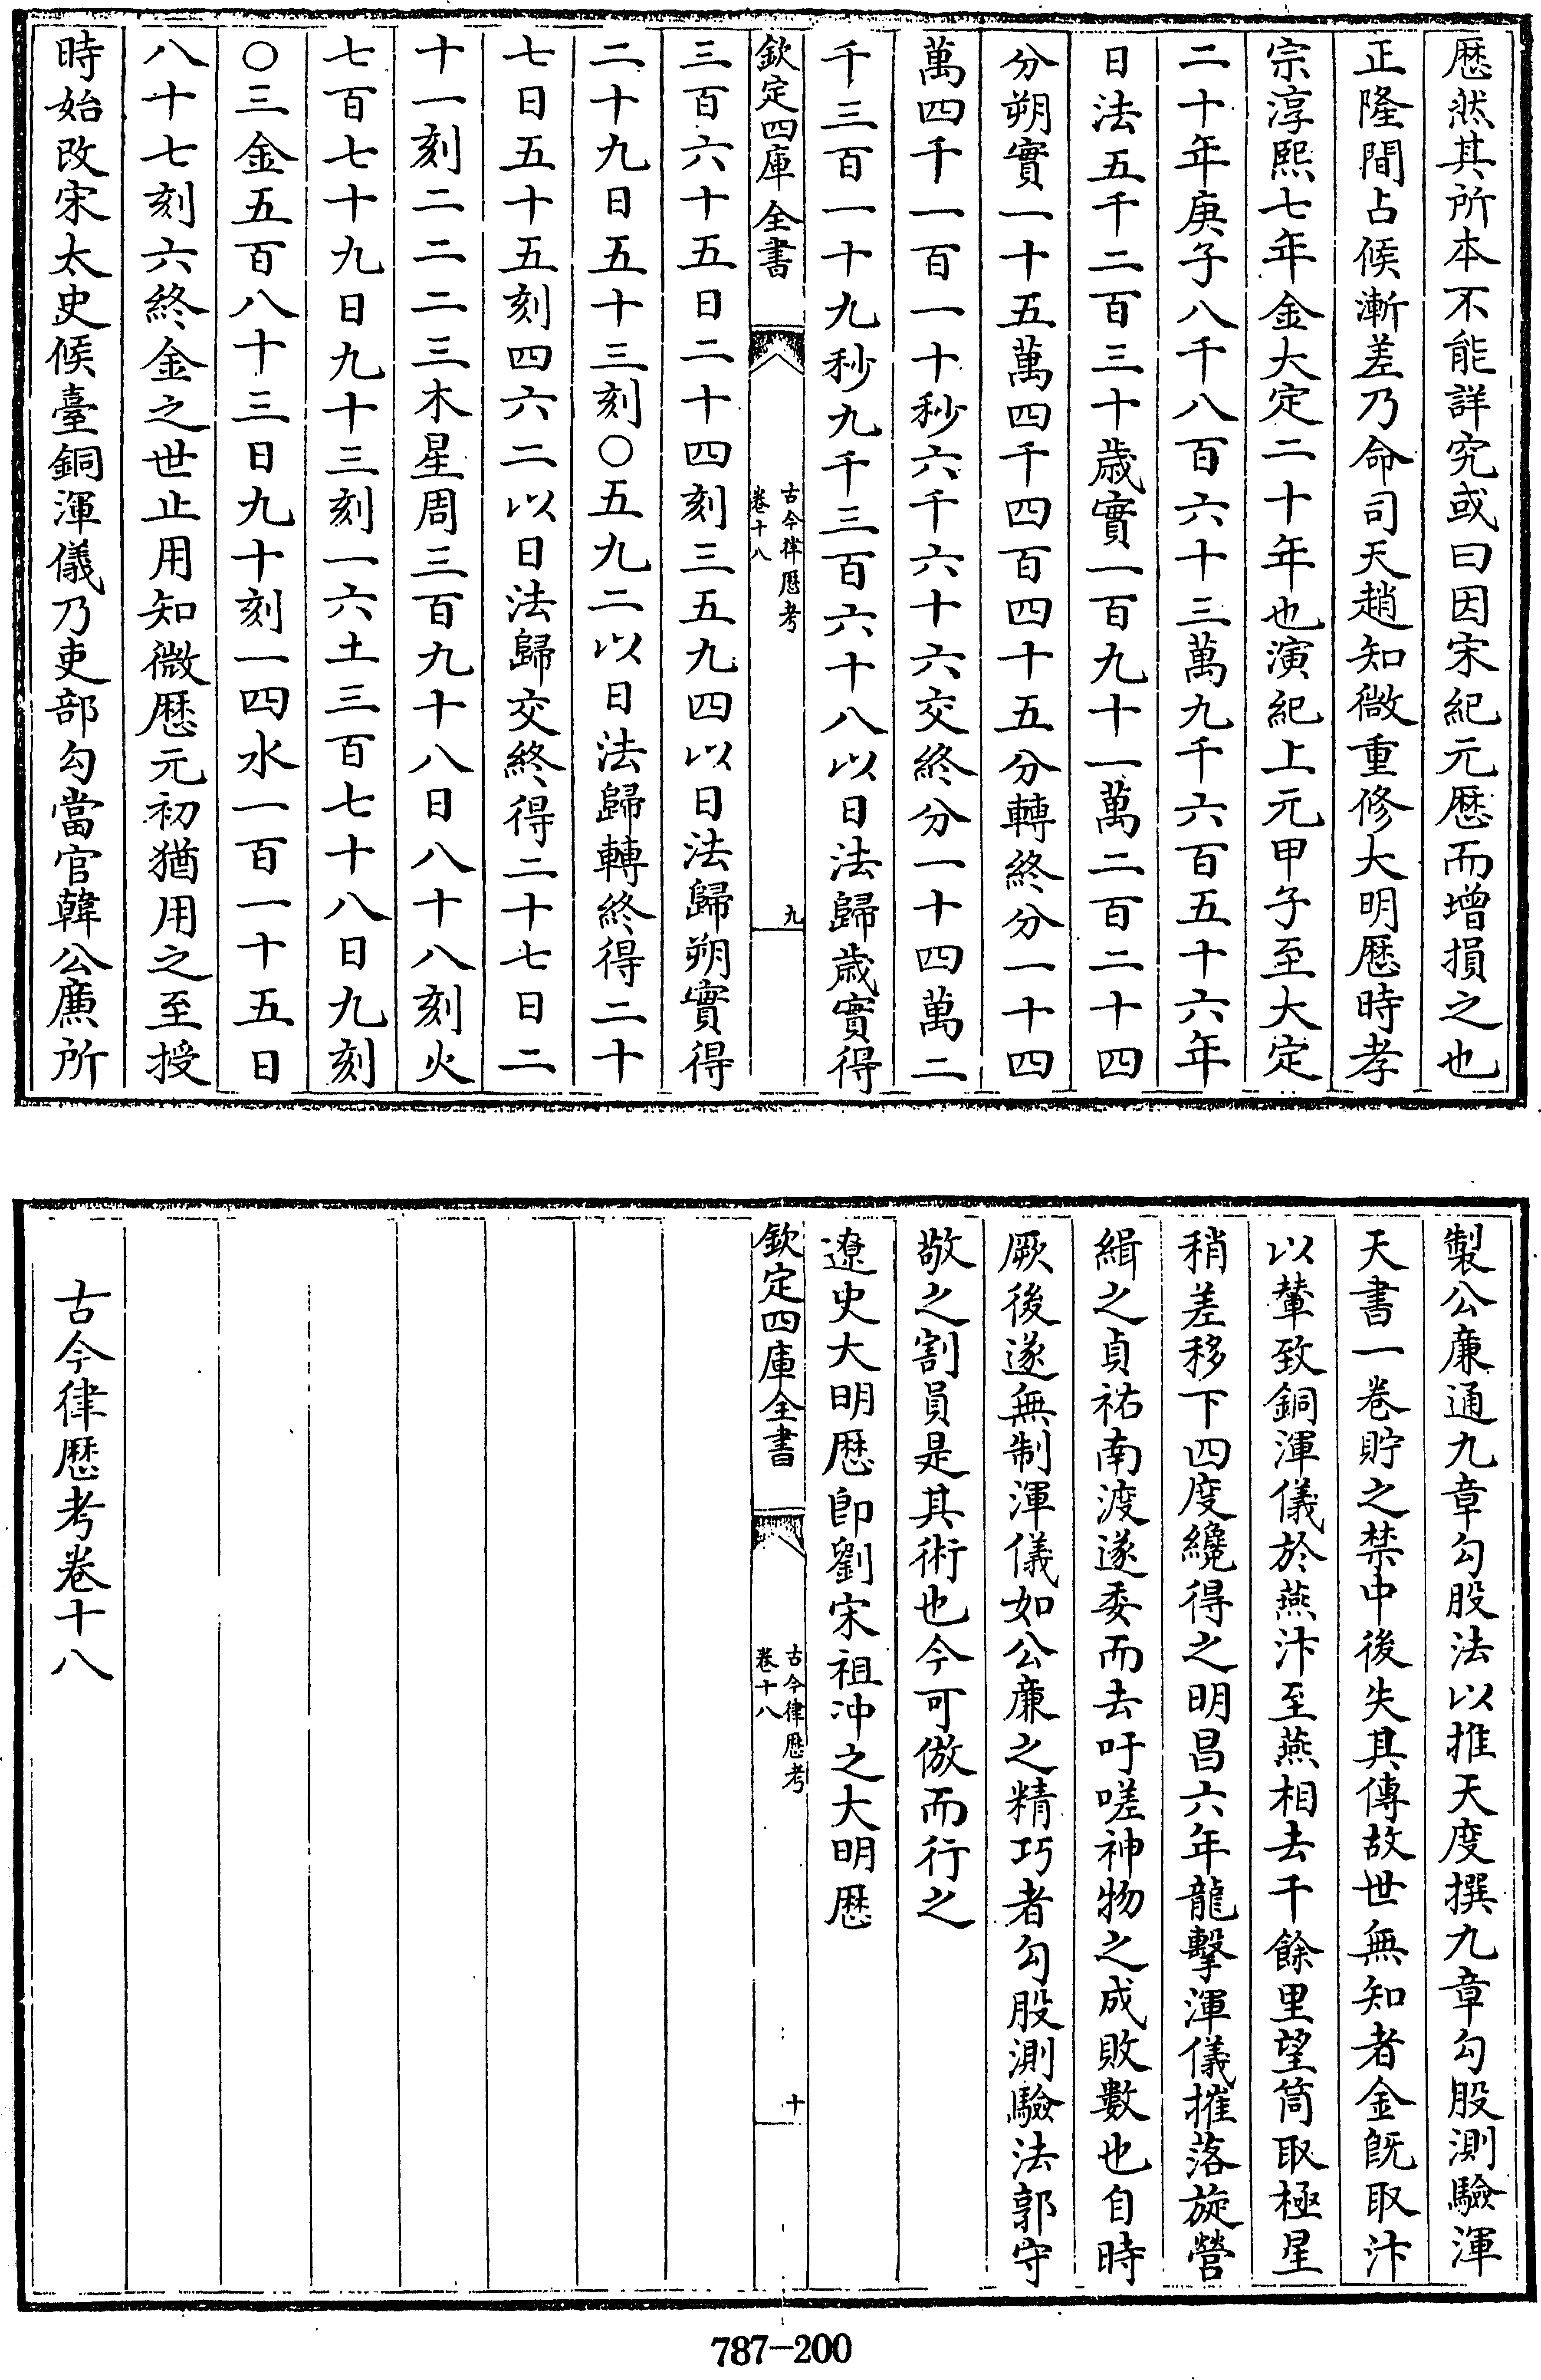 厯然其所本不能詳究或曰因宋紀元厯而增損之也
正隆間占候漸差乃命司天趙知微重修大明厯時孝
宗淳熙七年金大定二十年也演紀上元甲子至大定
二十年庚子八千八百六十三萬九千六百五十六年
日法五千二百三十歳實一百九十一萬二百二十四
分朔實一十五萬四千四百四十五分轉終分一十四
萬四千一百一十秒六千六十六交終分一十四萬二
千三百一十九秒九千三百六十八以日法歸歳實得
欽定四庫全書
古今律厯考
卷十八
九
三百六十五日二十四刻三五九四以日法歸朔實得
二十九日五十三刻〇五九二以日法歸轉終得二十
七日五十五刻四六二以日法歸交終得二十七日二
十一刻二二二三木星周三百九十八日八十八刻火
七百七十九日九十三刻一六土三百七十八日九刻
〇三金五百八十三日九十刻一四水一百一十五日
八十七刻六終金之世止用知微厯元初猶用之至授
時始改宋太史候臺銅渾儀乃吏部勾當官韓公廉所
製公廉通九章勾股法以推天度撰九章勾股測驗渾
天書一卷貯之禁中後失其傳故世無知者金旣取汴
以輦致銅渾儀於燕汴至燕相去千餘里望筒取極星
稍差移下四度纔得之明昌六年龍擊渾儀摧落旋營
緝之貞祐南渡遂委而去吁嗟神物之成敗數也自時
厥後遂無制渾儀如公廉之精巧者勾股測驗法郭守
敬之割員是其術也今可倣而行之
遼史大明厯卽劉宋祖冲之大明厯
欽定四庫全書
古今律厯考
卷十八
十
古今律厯考卷十八
787-200